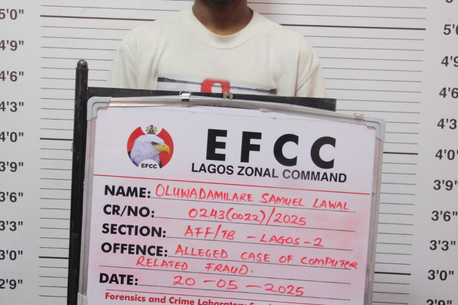 5'0"
4'9"
4'6"
4'3"
4'0"
3'9"
3'6"
3'3"
3'0"
2'9"
EFCC
EFCC
LAGOS ZONAL COMMAND
NAME: OLUWADAMILARE SAMUEL LAWAL
CR/NO: 0243(0022)/2025
SECTION: AFF/TB - LAGOS-2
OFFENCE: ALLEGED CASE OF COMPUTER
RELATED FRAUD.
DATE: 20-05-2025
Forensics and Crime Laboratory
5'0"
4'9"
4'6"
4'3"
4'0"
3'9"
3'6"
3'3"
3'0"
2'9"